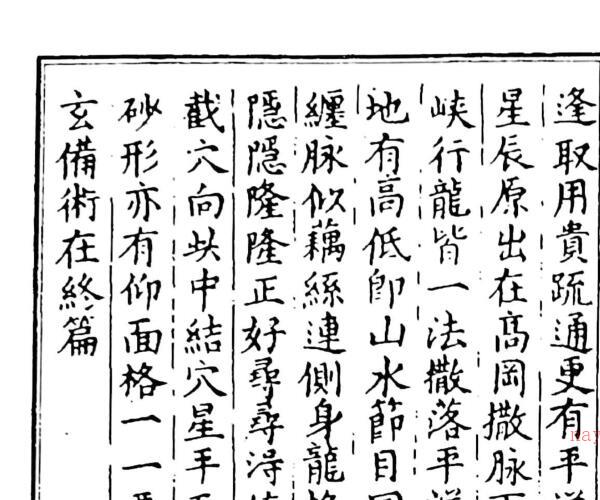 逢取用貴疏通更有平
星辰原出在高岡撒脉
峡行龍皆一法撒落平
地有高低卽山水節目
纏脉似藕絲連側身龍
隱隱隆隆正好尋尋得
截穴向此中結穴星平
砂形亦有仰面格一一
玄備術在終篇
nay